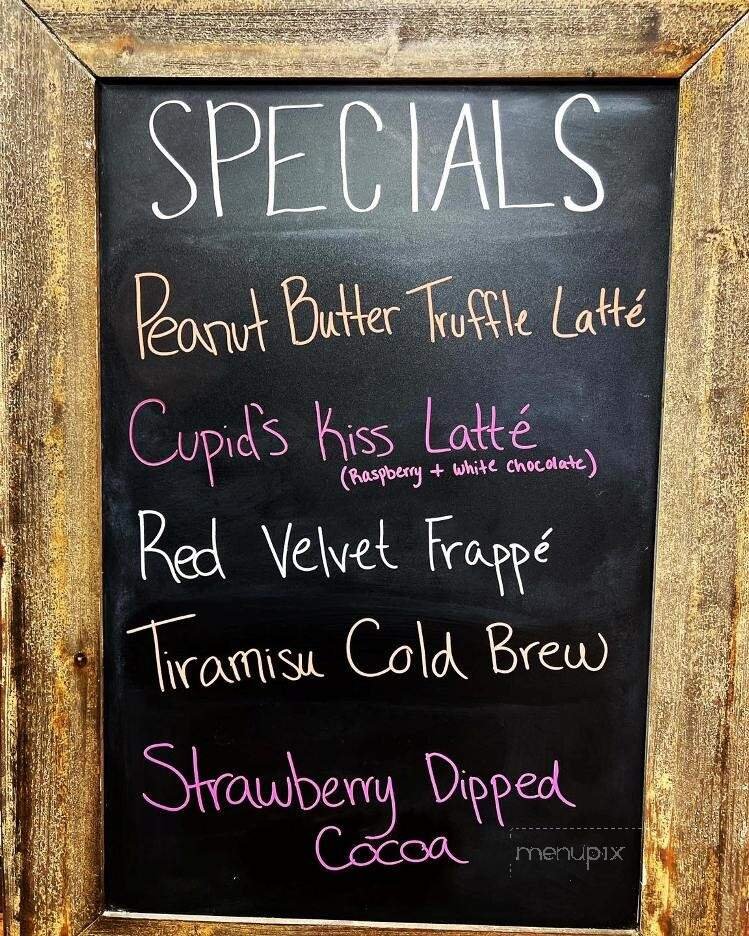 SPECIALS
Peanut Butter Truffle Latté
Cupid's Kiss Latté
(Raspberry + white chocolate)
Red Velvet Frappé
Tiramisu Cold Brew
Strawberry Dipped
Cocoa
menupix